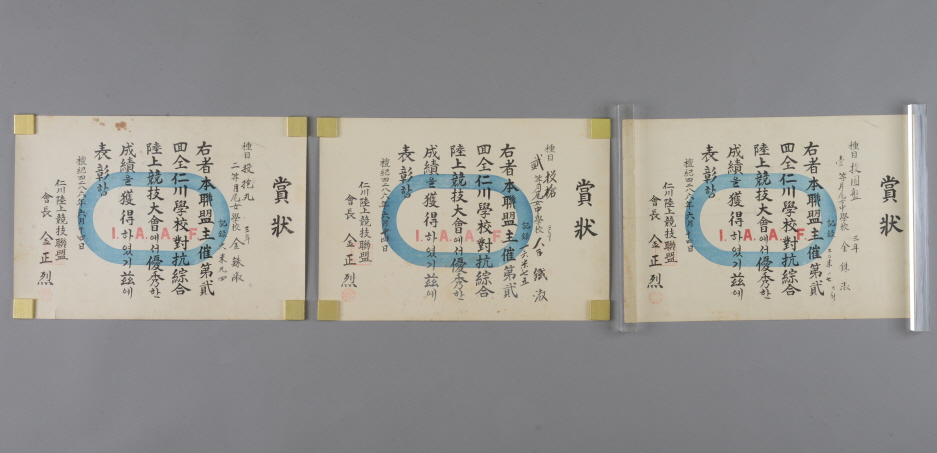 賞狀
種目 投圓盤
壹等 月尾中學校 三年 金 銖 淑
記錄
右者本聯盟主催第貳
回全仁川學校對抗綜合
陸上競技大會에서優秀한
成績을獲得하였기玆에
表彰함
檀紀四二八八年六月十四日
仁川陸上競技聯盟
會長 金正烈
I.A.A.F.
賞狀
種目 投槍
貳等 月尾女中學校 淑
記錄 一六米七五
右者本聯盟主催第貳
回全仁川學校對抗綜合
陸上競技大會에서優秀한
成績을獲得하였기玆에
表彰함
檀紀四二八八年六月十四日
仁川陸上競技聯盟
會長 金正烈
I.A.A.F.
賞狀
種目 投砲丸
二等 月尾女中學校 三年 金 銖 淑
記錄 米九四
右者本聯盟主催第貳
回全仁川學校對抗綜合
陸上競技大會에서優秀한
成績을獲得하였기玆에
表彰함
檀紀四二八八年六月十四日
仁川陸上競技聯盟
會長 金正烈
I.A.A.F.